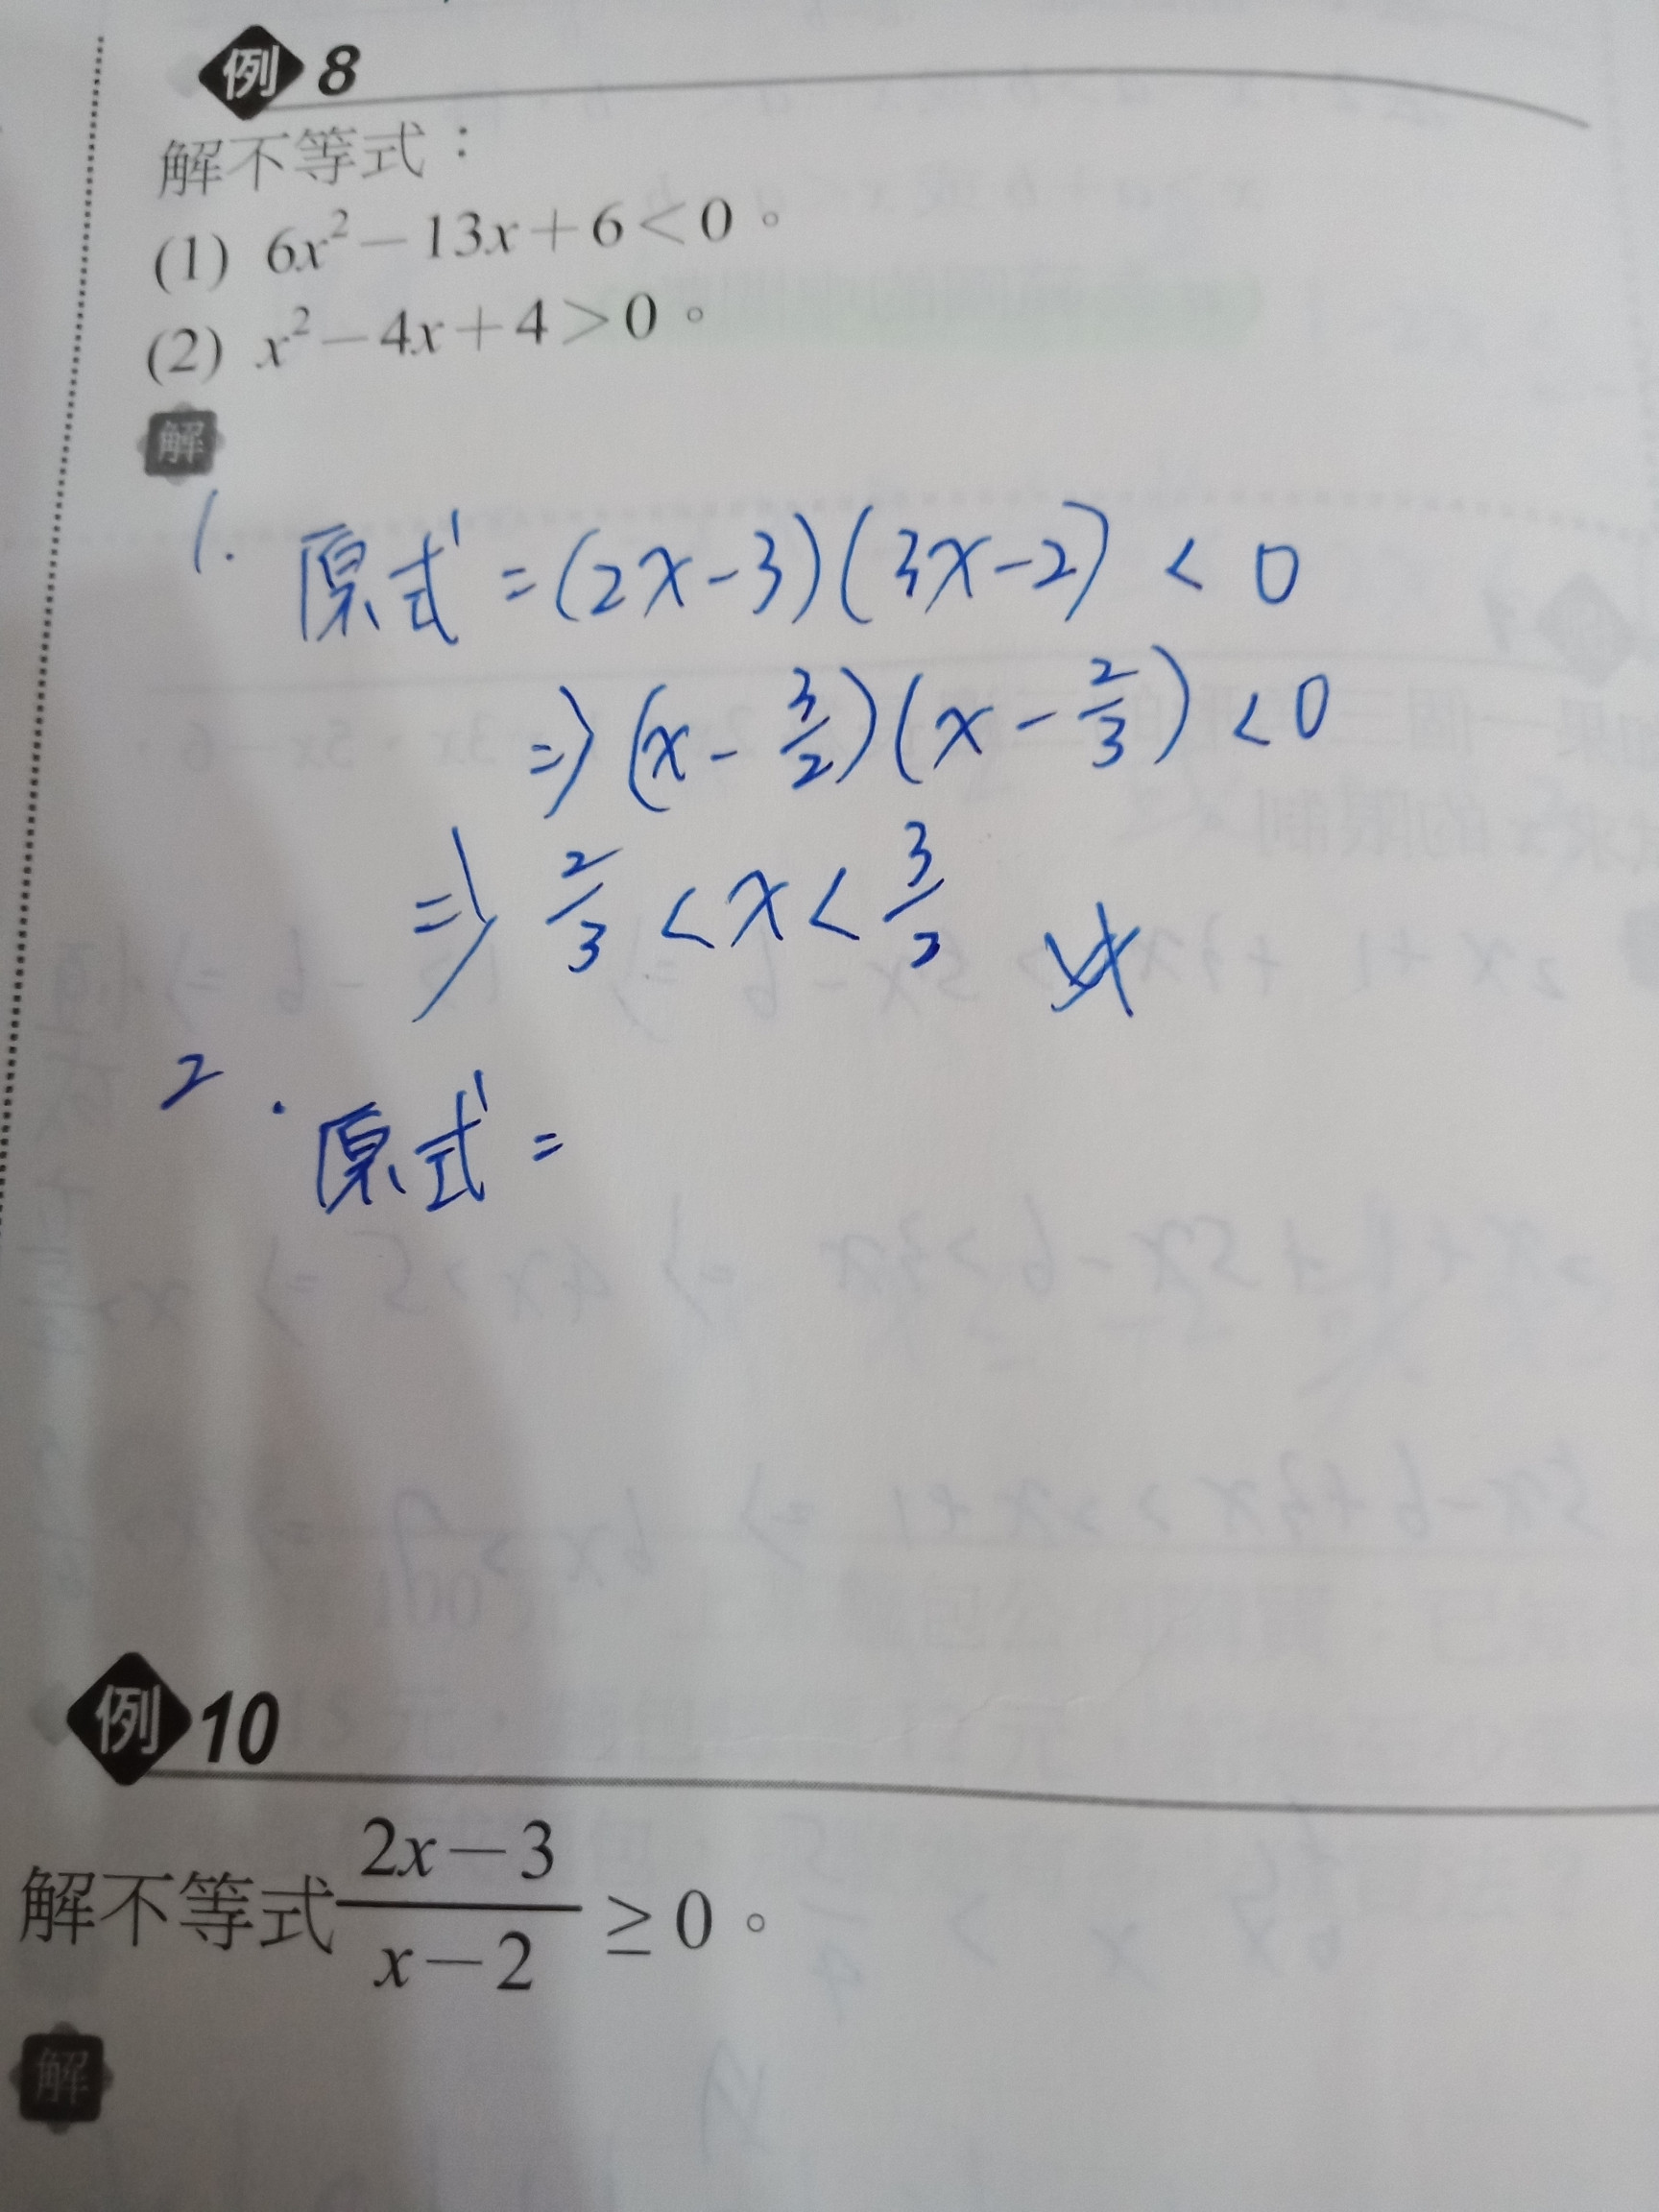 例 8
解不等式：
(1) 6x²－13x＋6＜0。
(2) x²－4x＋4＞0。
解
1. 原式 = (2x-3)(3x-2) < 0
⇒ (x - 3/2)(x - 2/3) < 0
⇒ 2/3 < x < 3/2
2. 原式 =
例 10
解不等式 (2x－3)/(x－2) ≥ 0。
解